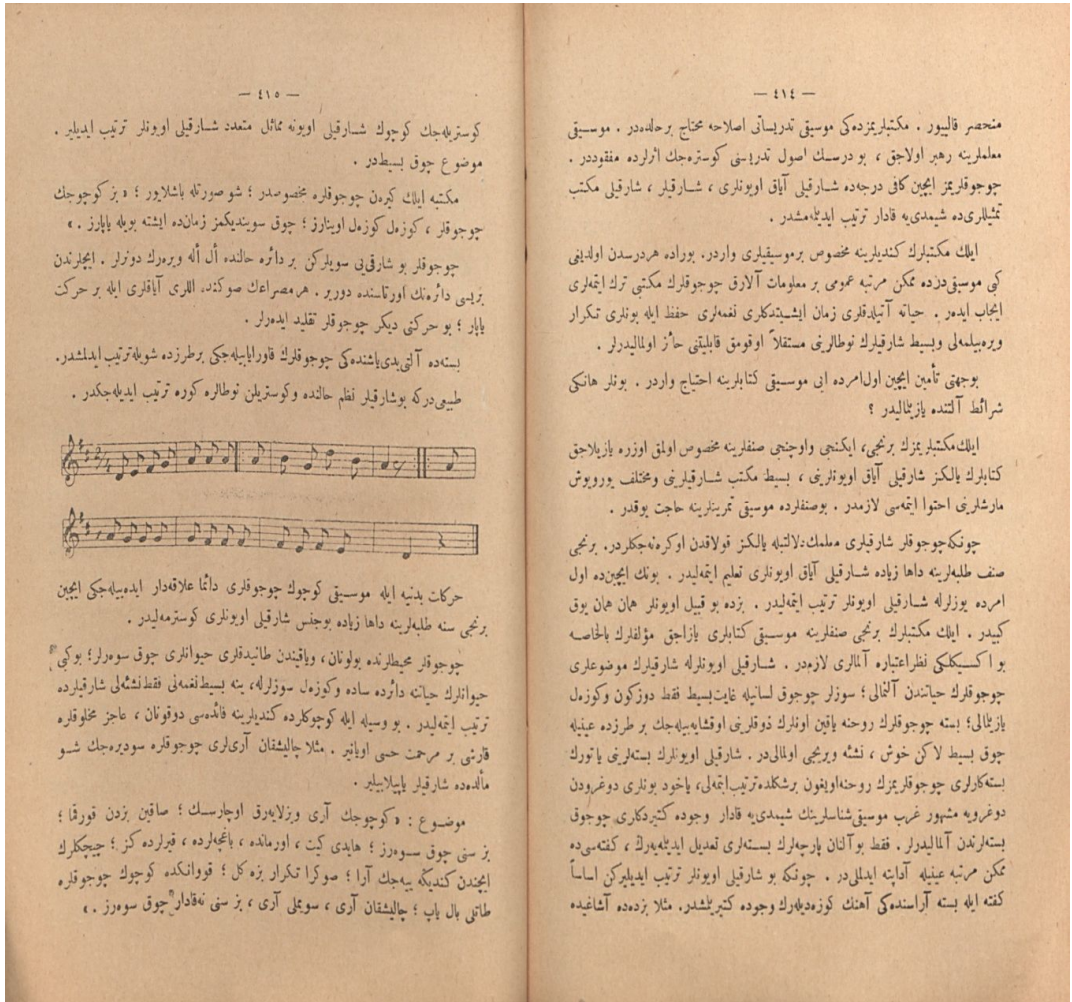 — ٤١٤ —
منحصر قالیيور . مكتبلريمزده‌كی موسيقی تدريساتی اصلاحه محتاج بر حلده‌در . موسيقی
معلملرينه رهبر اولاجق ، بو درسك اصول تدريسنی كوستره‌جك اثرلرده مفقوددر .
چوجوقلريمز ايچين كافی درجه‌ده شارقيلی آياق اويونلری ، شارقيلر ، شارقيلی مكتب
تمثيللری‌ده شيمدی‌يه قادار ترتيب ايديله‌مشدر .
ايلك مكتبلرك كنديلرينه مخصوص برموسيقيلری واردر. بوراده هردرسدن اولدیغی
كبی موسيقی‌دزده ممكن مرتبه عمومی بر معلومات آلارق چوجوقلرك مكتبی ترك ايتمه‌لری
ايجاب ايدهر . حياته آتيلدقلری زمان ايشيتدكلری نغمه‌لری حفظ ايله بونلری تكرار
ويره‌بيلمه‌لی وبسيط شارقيلرك نوطالرينی مستقلاً اوقومق قابليتنی حائز اولماليدرلر .
بوجهتی تأمين ايچين اول‌امرده ايی موسيقی كتابلرينه احتياج واردر . بونلر هانكی
شرائط آلتنده يازيلماليدر ؟
ايلك‌مكتبلريمزك برنجی، ايكنجی واوچنجی صنفلرينه مخصوص اولمق اوزره يازيلاجق
كتابلرك يالكز شارقيلی آياق اويونلرينی ، بسيط مكتب شارقيلرينی ومختلف يورويوش
مارشلرينی احتوا ايتمه‌سی لازمدر . بوصنفلرده موسيقی تمرينلرينه حاجت يوقدر .
چونكه‌چوجوقلر شارقيلری معلمك‌دلالتيله يالكز قولاقدن اوكره‌نه‌جكلردر. برنجی
صنف طلبه‌لرينه داها زياده شارقيلی آياق اويونلری تعليم ايتمه‌ليدر . بونك ايچين‌ده اول
امرده يوزلرله شارقيلی اويونلر ترتيب ايتمه‌ليدر . بزده بو قبيل اويونلر همان همان يوق
كبيدر . ايلك مكتبلرك برنجی صنفلرينه موسيقی كتابلری يازاجق مؤلفلرك بالخاصه
بو اكسيكلكی نظراعتباره آلمالری لازمدر . شارقيلی اويونلرله شارقيلرك موضوعلری
چوجوقلرك حياتندن آلنمالی ؛ سوزلر چوجوق لسانيله غايت‌بسيط فقط دوزكون وكوزه‌ل
يازيلمالی؛ بسته چوجوقلرك روحنه ياقين اونلرك ذوقلرينی اوقشايه‌بيله‌جك بر طرزده عينيله
چوق بسيط لاكن خوش ، نشئه ويريجی اولمالی‌در . شارقيلی اويونلرك بسته‌لرينی ياتورك
بسته‌كارلری چوجوقلريمزك روحنه‌اويغون برشكلده‌ترتيب‌ايتمه‌لی، ياخود بونلری دوغرودن
دوغرويه مشهور غرب موسيقی‌شناسلرينك شيمدی‌يه قادار وجوده كتيردكلری چوجوق
بسته‌لرندن آلماليدرلر . فقط بوآلنان پارچه‌لرك بسته‌لری تعديل ايديله‌يه‌رك ، كفته‌سی‌ده
ممكن مرتبه عينيله آداپته ايدلملی‌در . چونكه بو شارقيلی اويونلر ترتيب ايديليركن اساساً
كفته ايله بسته آراسنده‌كی آهنك كوزه‌ديله‌رك وجوده كتيريلمشدر. مثلا بزده‌ده آشاغيده
— ٤١٥ —
كوستريله‌جك كوچوك شارقيلی اويونه مماثل متعدد شارقيلی اويونلر ترتيب ايديلير .
موضوع چوق بسيطدر .
مكتبه ايلك كيرن چوجوقلره مخصوصدر ؛ شو صورتله باشلايور ؛ « بز كوچوجك
چوجوقلر ، كوزه‌ل كوزه‌ل اوينارز ؛ چوق سوينديكمز زمان‌ده ايشته بويله ياپارز . »
چوجوقلر بو شارقی‌يی سويلركن بر دائره حالنده أل أله ويره‌رك دونرلر . ايچلرندن
بريسی دائره‌نك اورتاسنده دورير . هر مصراعك صوكنده اللری آياقلری ايله بر حركت
ياپار ؛ بو حركتی ديكر چوجوقلر تقليد ايده‌رلر .
بسته‌ده آلتی‌يدی‌ياشنده‌كی چوجوقلرك قاورايابيله‌جكی برطرزده شويله‌ترتيب ايدلمشدر.
طبيعی‌دركه بوشارقيلر نظم حالنده وكوستريلن نوطالره كوره ترتيب ايديله‌جكدر .
حركات بدنيه ايله موسيقی كوچوك چوجوقلری دائما علاقه‌دار ايده‌بيله‌جكی ايچين
برنجی سنه طلبه‌لرينه داها زياده بوجنس شارقيلی اويونلری كوسترمه‌ليدر .
چوجوقلر محيطلرنده بولونان، وياقيندن طانيدقلری حيوانلری چوق سوه‌رلر؛ بوكبی
حيوانلرك حياتنه دائرده ساده وكوزه‌ل سوزلرله، ينه بسيط‌نغمه‌نی فقط‌نشئه‌لی شارقيلرده
ترتيب ايتمه‌ليدر . بو وسيله ايله كوچوكلرده كنديلرينه فائده‌سی دوقونان ، عاجز مخلوقلره
قارشی بر مرحمت حسی اويانير . مثلا چاليشقان آری‌لری چوجوقلره سوديره‌جك شو
مألده‌ده شارقيلر ياپيلابيلير .
موضوع : « كوچوجك آری ويزلايه‌رق اوچارسك ؛ صاقين بزدن قورقما ؛
بز سنی چوق سوه‌رز ؛ هايدی كيت ، اورمانده ، باغچه‌لرده ، قيرلرده كز ؛ چيچكلرك
ايچندن كنديكه ييه‌جك آرا ؛ صوكرا تكرار بزه كل ؛ قووانكده كوچوك چوجوقلره
طاتلی بال ياپ ؛ چاليشقان آری ، سويملی آری ، بز سنی نه‌قادار چوق سوه‌رز . »